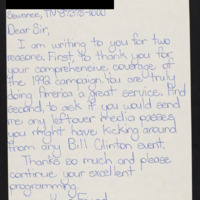 Sewanee, TN 37375-1000
Dear Sir,
I am writing to you for two
reasons. First, to thank you for
your comprehensive coverage of
the 1992 campaign. You are truly
doing America a great service. And
second, to ask if you would send
me any leftover media passes
you might have kicking around
from any Bill Clinton event.
Thanks so much and please
continue your excellent
programming.